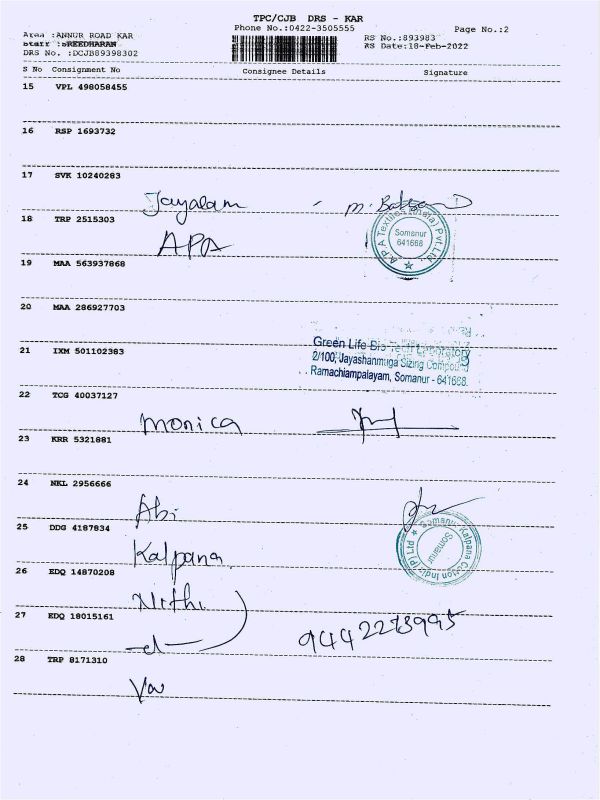 TPC/CJB DRS - KAR
Phone No.:0422-3505555
Page No.:2
Area :ANNUR ROAD KAR
Staff :SREEDHARAN
DRS No. :DCJB89398302
RS No.:893983
RS Date:18-Feb-2022
S No Consignment No Consignee Details Signature
15 VPL 498058455
16 RSP 1693732
17 SVK 10240283
Jayalam
18 TRP 2515303
APA
A.P.A Textile (India) Pvt. Ltd.
Somanur
641668
19 MAA 563937868
20 MAA 286927703
21 IXM 501102383
Green Life Bio-Tech Laboratory
2/100, Jayashanmuga Sizing Compound
Ramachiampalayam, Somanur - 641668.
22 TCG 40037127
monica
23 KRR 5321881
24 NKL 2956666
Abi
25 DDG 4187834
Kalpana
Kalpana Cotton India (P) Ltd
Somanur
Somanur
26 EDQ 14870208
Nithi
27 EDQ 18015161
9442273995
28 TRP 8171310